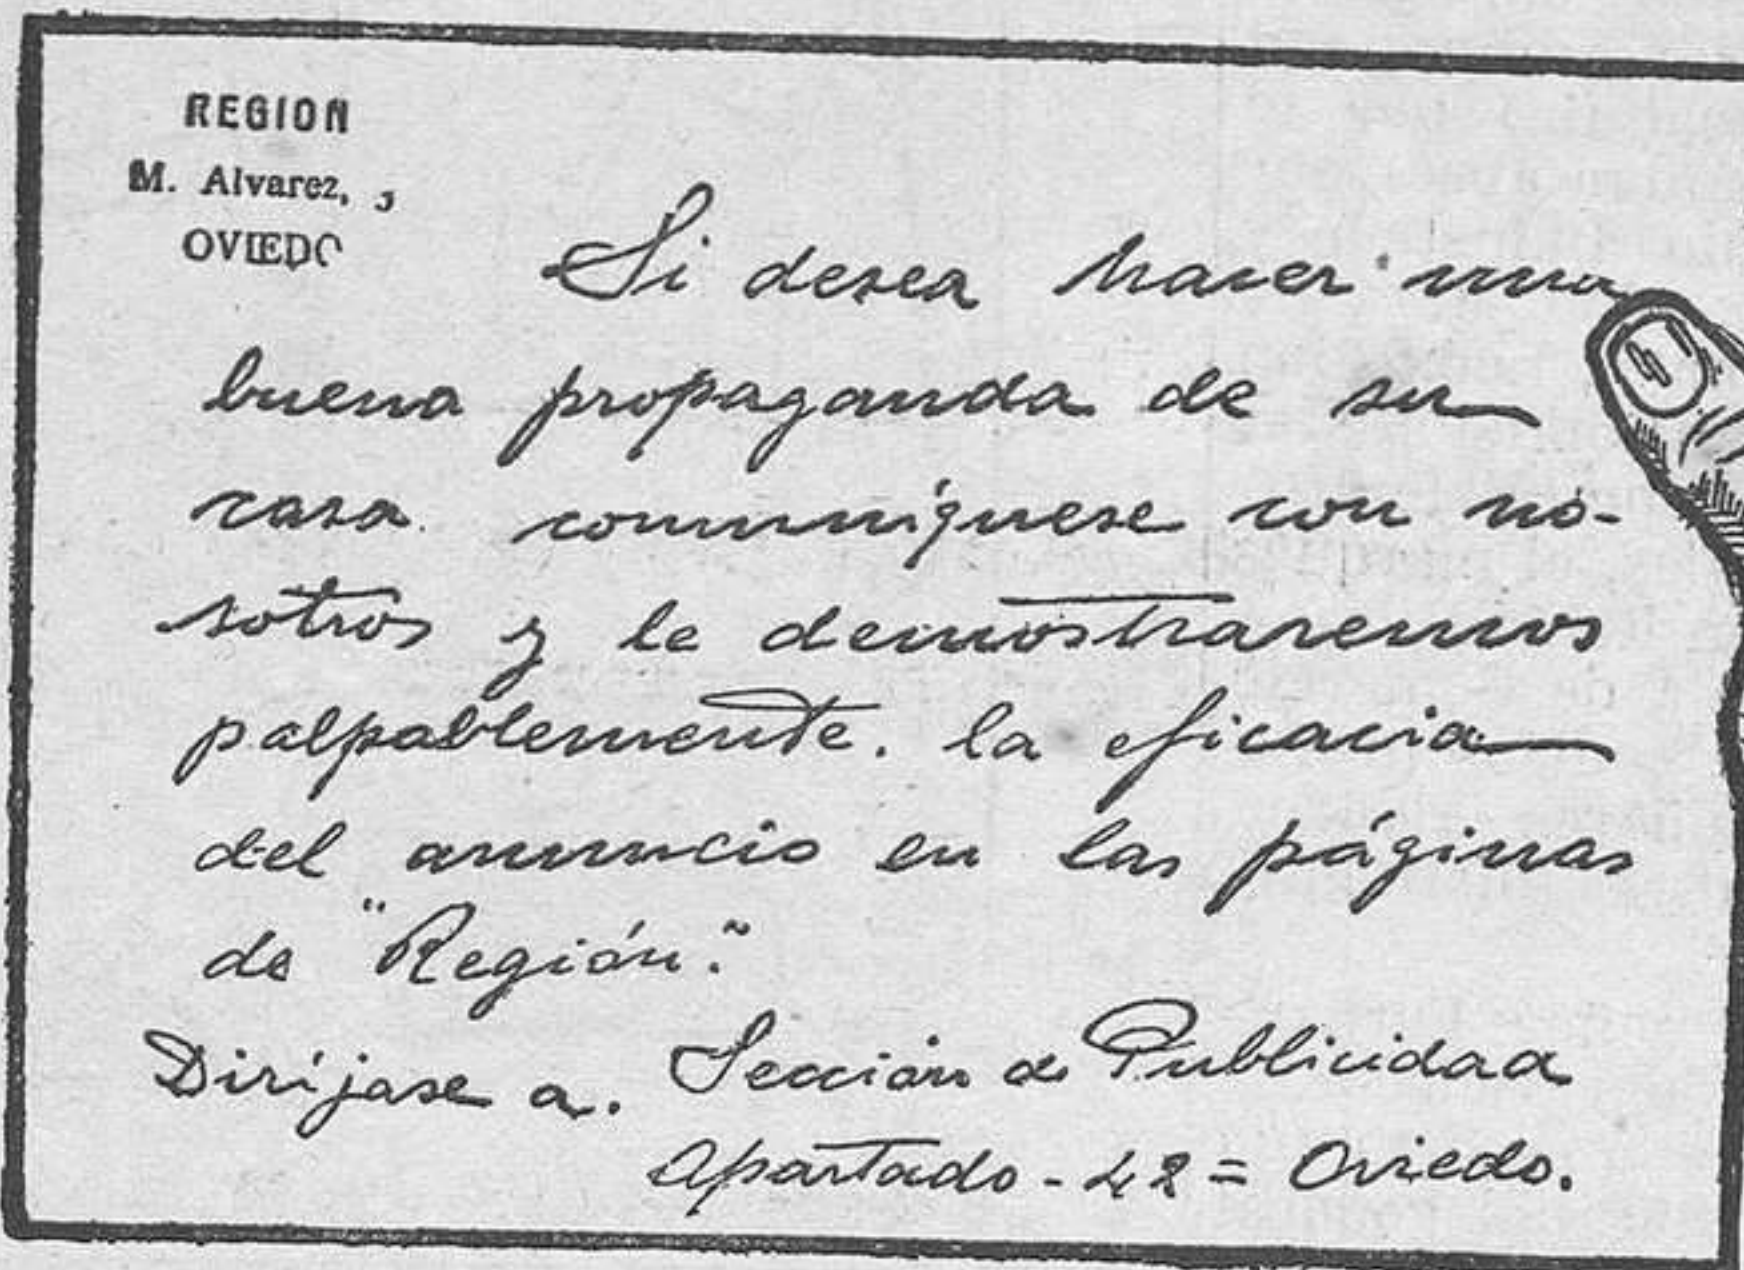 REGION
M. Alvarez,
OVIEDO
Si desea hacer una
buena propaganda de su
casa comuníquese con no-
sotros y le demostraremos
palpablemente. la eficacia
del anuncio en las páginas
de "Región".
Diríjase a. Sección de Publicidad
Apartado - 42 = Oviedo.